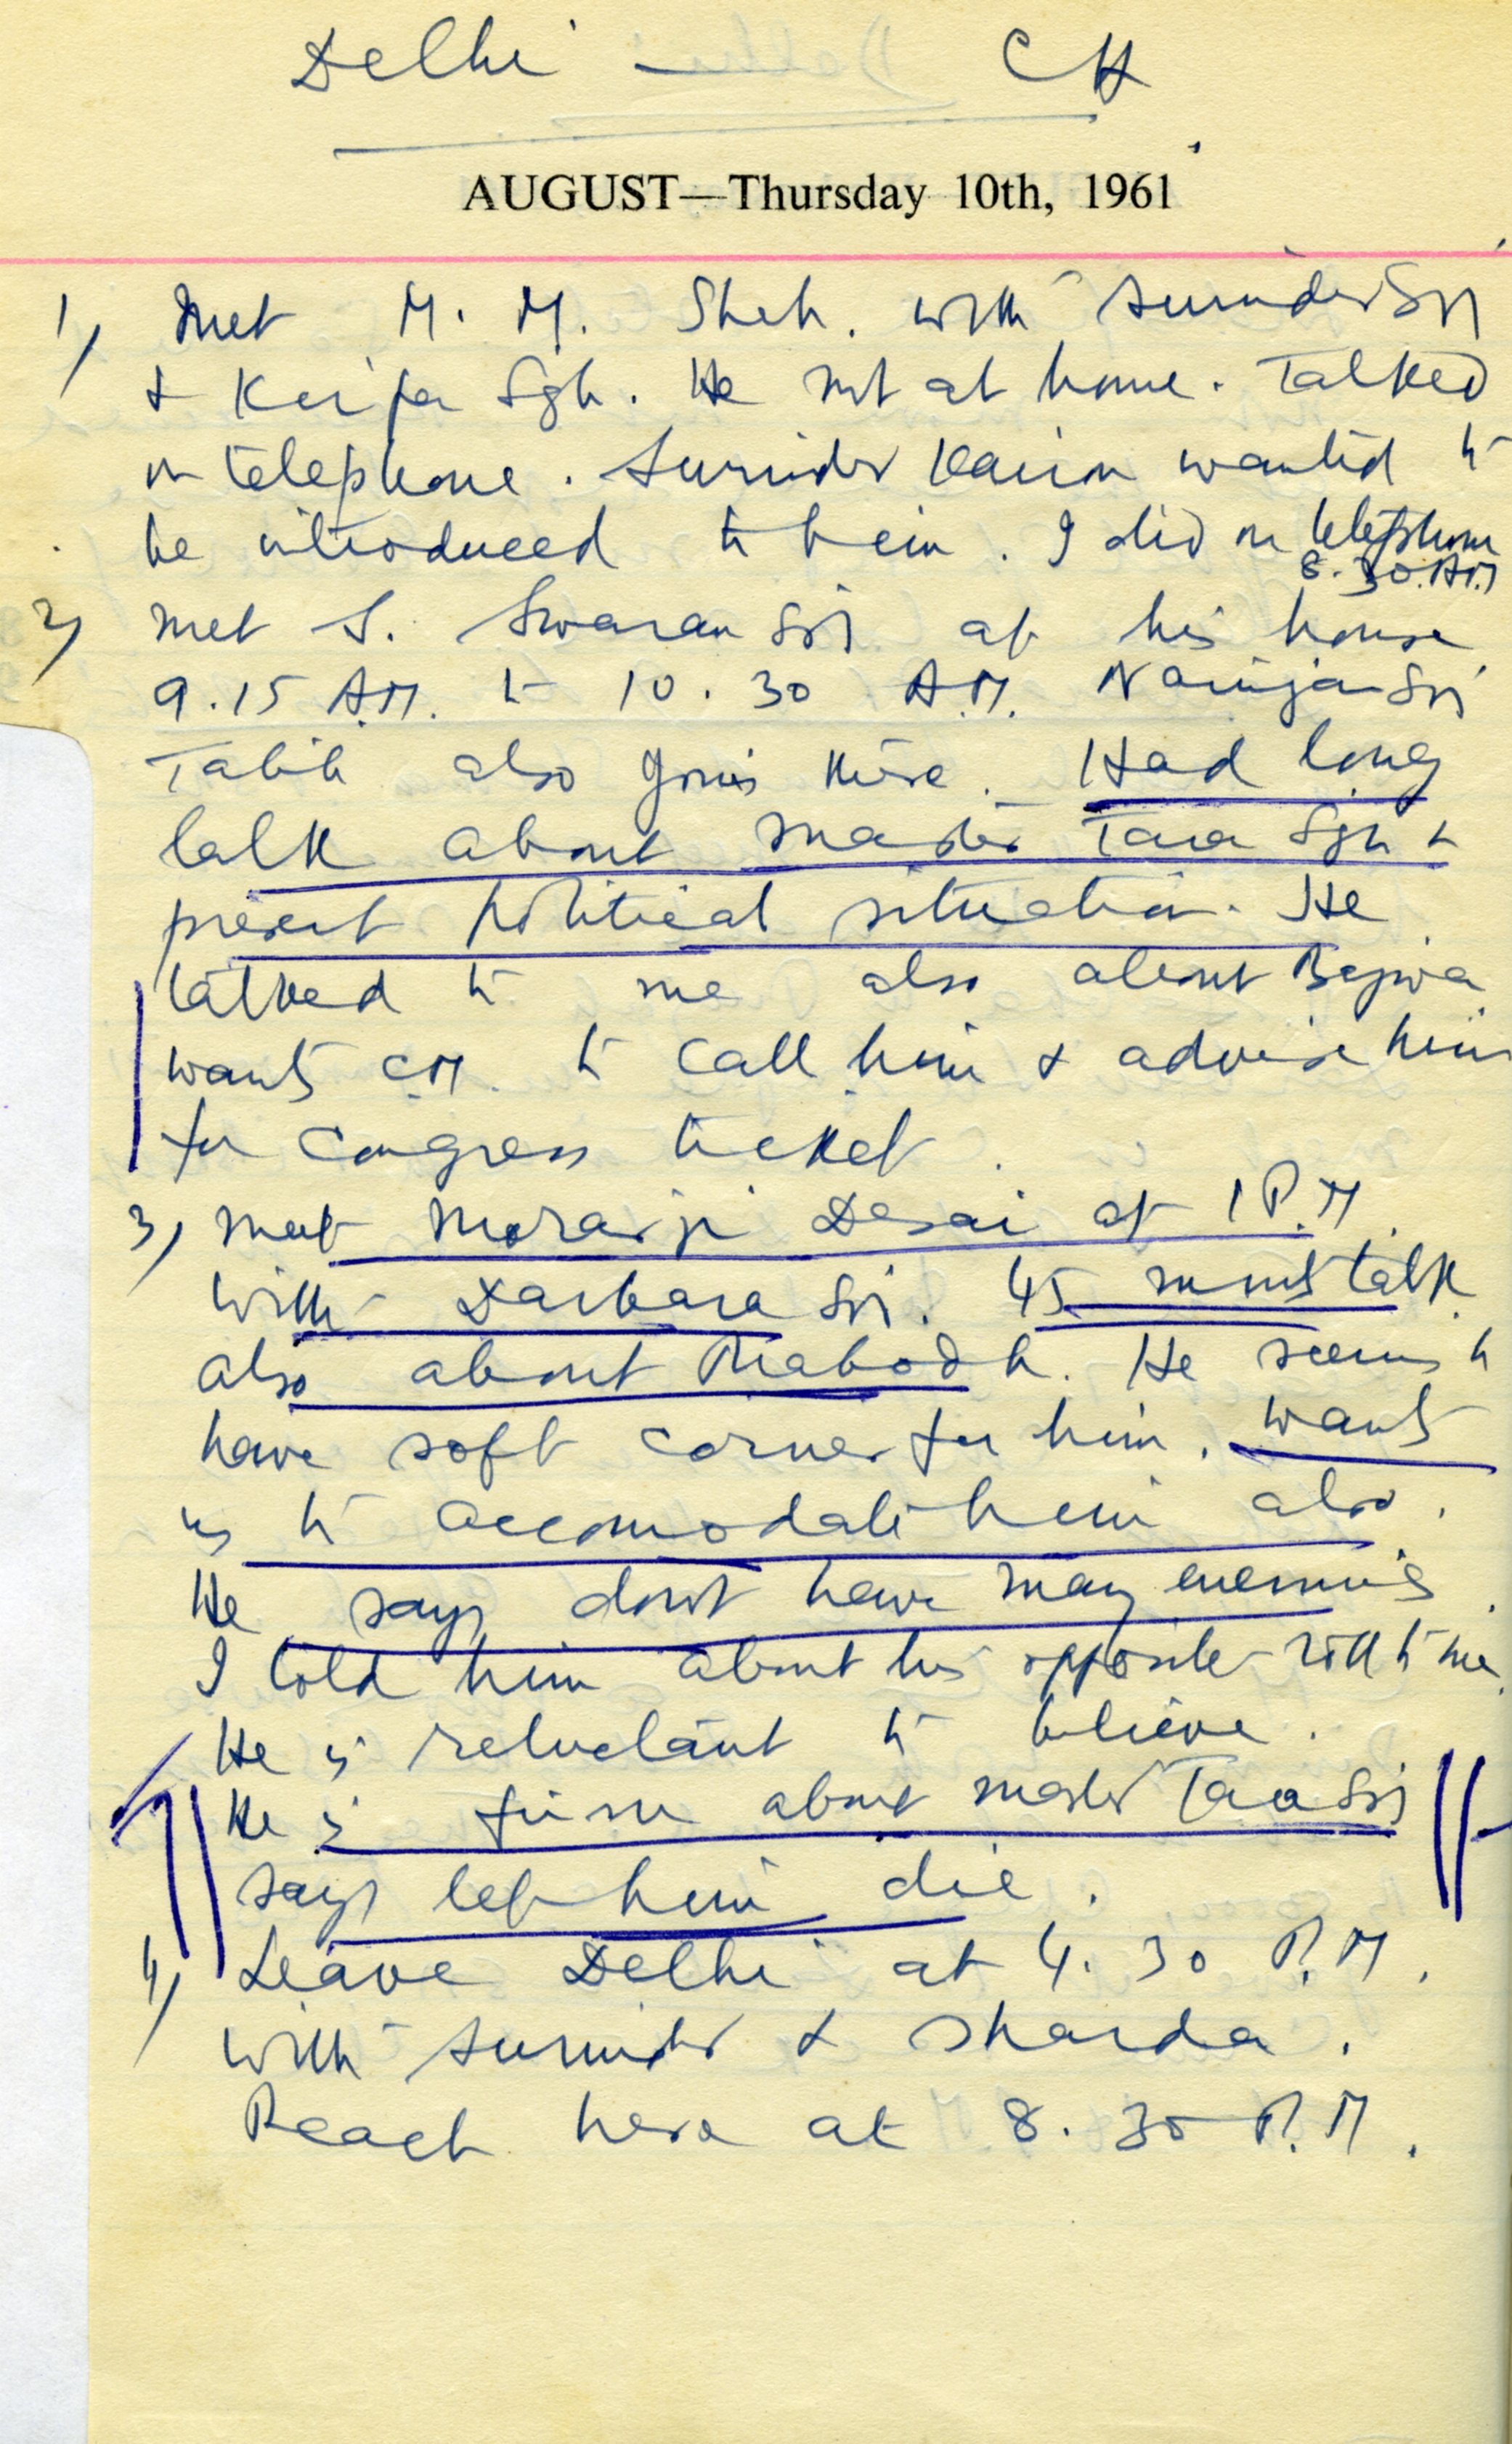 Delhi — CH
AUGUST—Thursday 10th, 1961
1) Met M. M. Shah. with Surinder Sgh
& Kirpa Sgh. He not at home. Talked
on telephone. Surinder Kairon wanted to
be introduced to him. I did on telephone
8.30. A.M
2) met S. Swaran Sgh at his house
9.15 A.M. to 10.30 A.M. Nainjan Sgh
Talib also joins there. Had long
talk about Master Tara Sgh &
present political situation. He
talked to me also about Bajwa
wants C.M. to call him & advise him
for Congress ticket.
3) met Morarji Desai at 1 P.M.
with Darbara Sgh. 45 minuts talk
also about Prabodh. He seems to
have soft corner for him. wants
us to accomodate him also.
He says dont have many enemies.
I told him about his opposite roll to me.
He is reluctant to believe.
He is firm about master Tara Sgh
says let him die.
4) Leave Delhi at 4.30 P.M.
with Surinder & Sharda.
Reach here at 8.30 P.M.